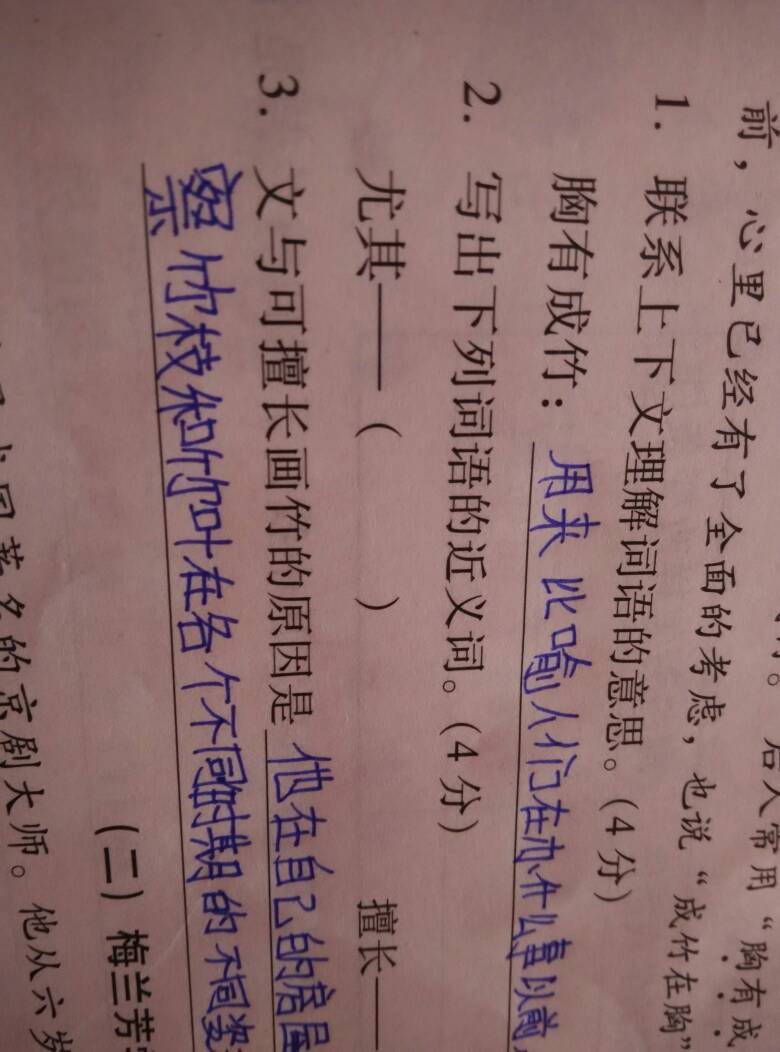 后人常用“胸有成
前，心里已经有了全面的考虑，也说“成竹在胸”
1. 联系上下文理解词语的意思。(4分)
胸有成竹：用来比喻人们在办什么事以前
2. 写出下列词语的近义词。(4分)
尤其——（ ） 擅长——
3. 文与可擅长画竹的原因是 他在自己的房屋
察竹枝和竹叶在各个不同时期的不同姿
(二) 梅兰芳
著名的京剧大师。他从六岁